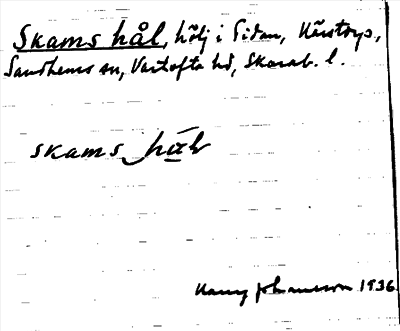 Skams hål, hölj i Tidan, Kärstorp,
Sandhems sn, Vartofta hd, Skarab. l.
skams hål
Harry Johansson 1936